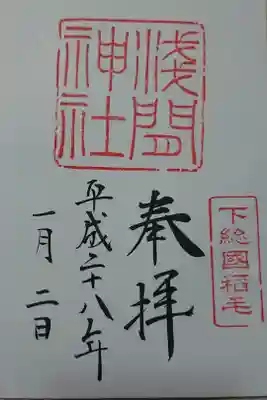 下総國稲毛
淺間
神社
奉拝
平成二十八年
一月二日